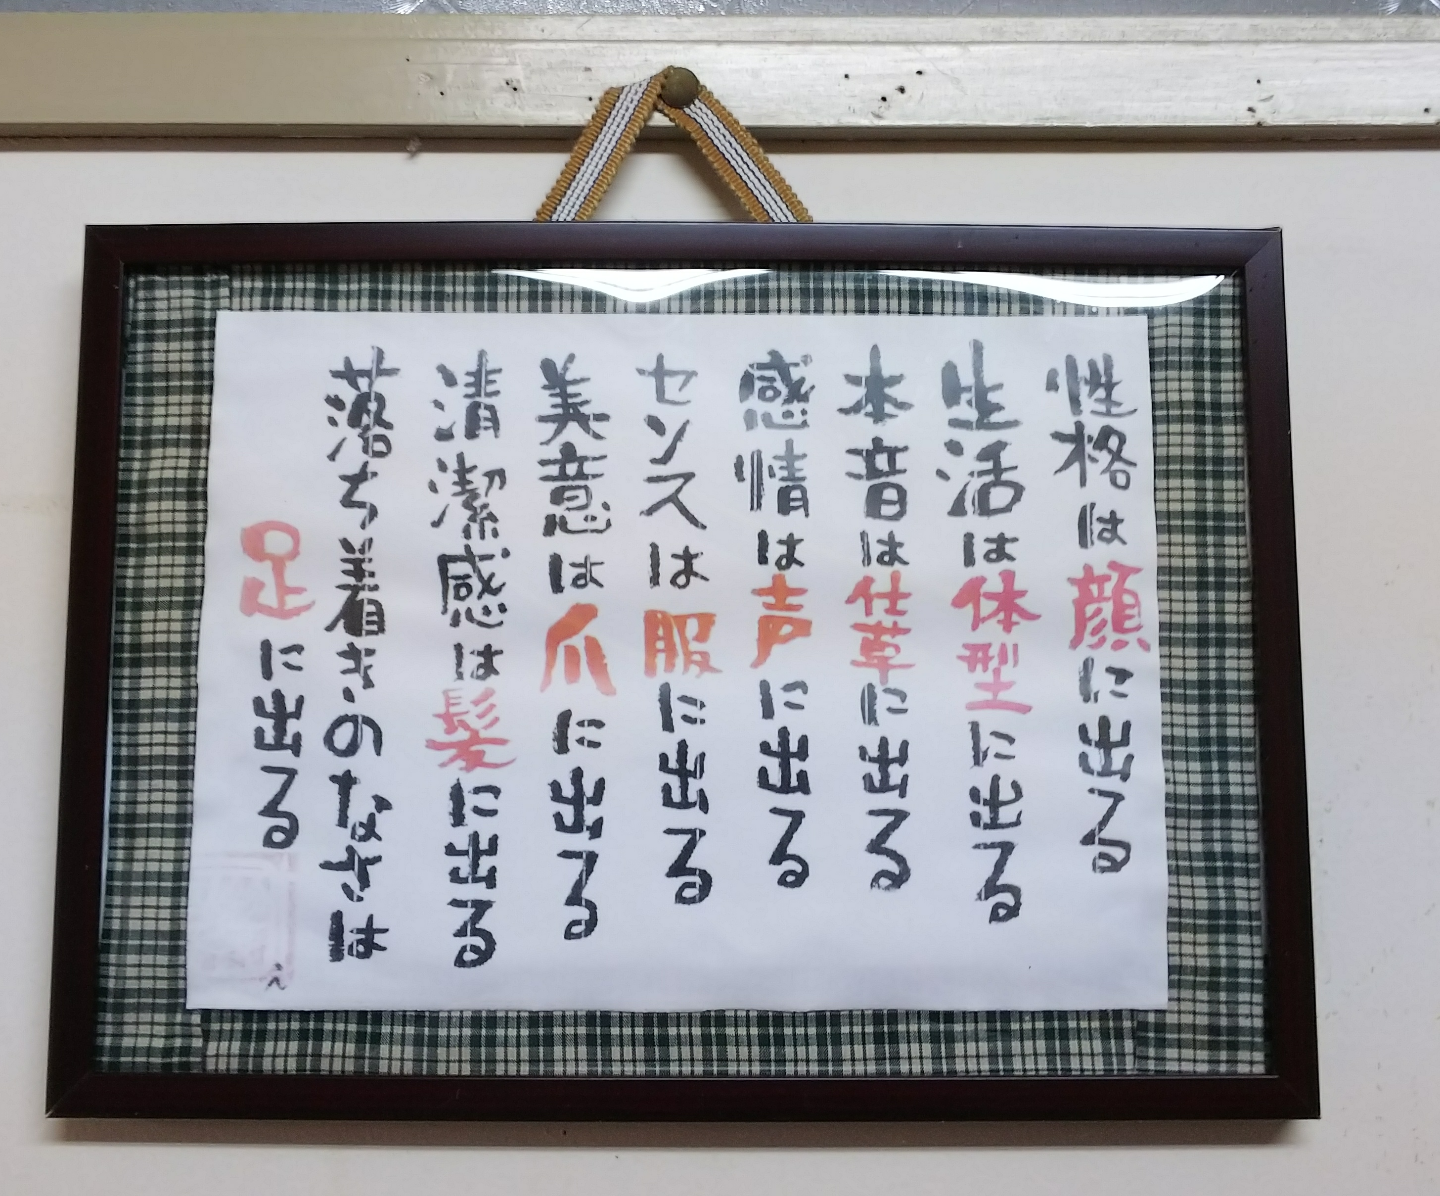 性格は顔に出る
生活は体型に出る
本音は仕草に出る
感情は声に出る
センスは服に出る
美意は爪に出る
清潔感は髪に出る
落ち着きのなさは
足に出る